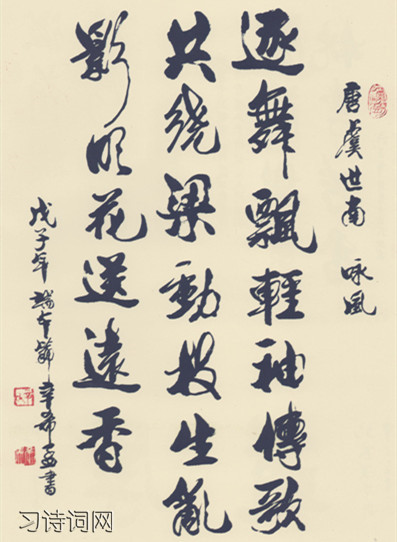 唐虞世南 咏风
逐舞飘輕袖傳歌
共绕梁動枝生亂
影吹花送遠香
戊子年
書
习诗词网